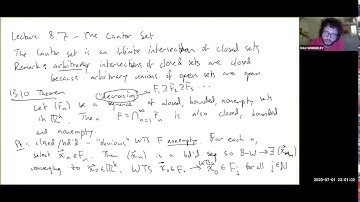 Lecture 8.7 - The Cantor Set
The Cantor set is an infinite intersection of closed sets
Remark: arbitrary intersections of closed sets are closed
because arbitrary unions of open sets are open.
13.10 Theorem decreasing F₁⊇F₂⊇F₃⊇ ...
Let (Fₙ) be a sequence of closed, bounded, nonempty sets
in ℝᵏ. Then F = ⋂ₙ₌₁^∞ Fₙ is also closed, bounded
and nonempty.
Pf: closed/bd'd - "obvious" WTS F nonempty. For each n,
select x⃗ₙ ∈ Fₙ. Then (x⃗ₙ) is a bd'd seq so B-W → ∃ (x⃗ₙₘ)
converging to x⃗₀ ∈ ℝᵏ. WTS x⃗₀ ∈ F. WTS x⃗₀ ∈ Fⱼ for all j ∈ ℕ
2020-07-01 23:01:02